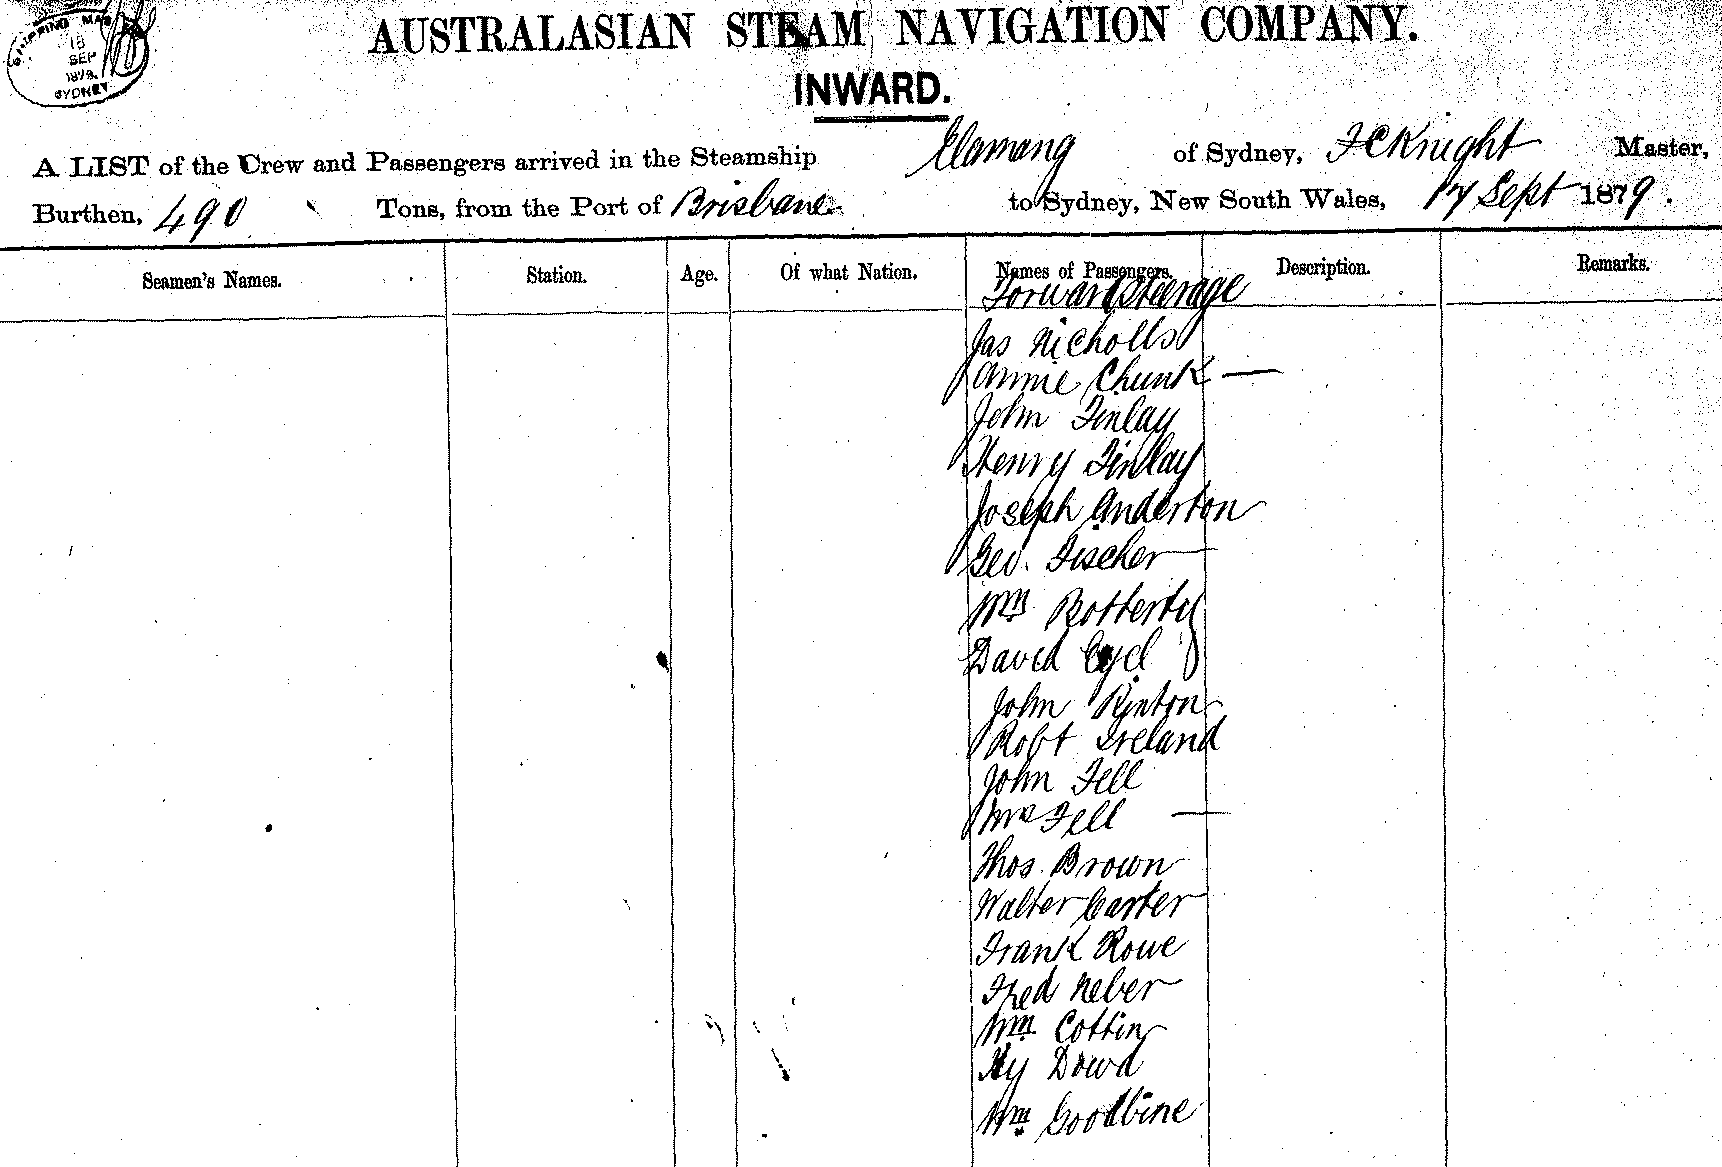 SHIPPING MAS
18
SEP
1879
SYDNEY
AUSTRALASIAN STEAM NAVIGATION COMPANY.
INWARD.
A LIST of the Crew and Passengers arrived in the Steamship Elamang of Sydney, F C Knight Master,
Burthen, 490 Tons, from the Port of Brisbane to Sydney, New South Wales, 17 Sept 1879.
Seamen's Names. Station. Age. Of what Nation. Names of Passengers. Description. Remarks.
Forward Steerage
Jas Nicholls
Annie Chunk —
John Finlay
Henry Finlay
Joseph Anderton
Geo. Fischer
Wm Botterty
David
John Rinton
Robt Ireland
John Fell
Mrs Fell —
Thos. Brown
Walter Carter
Frank Rowe
Fred Neber
Wm Cottin
Hy Dowd
Wm Goodbine